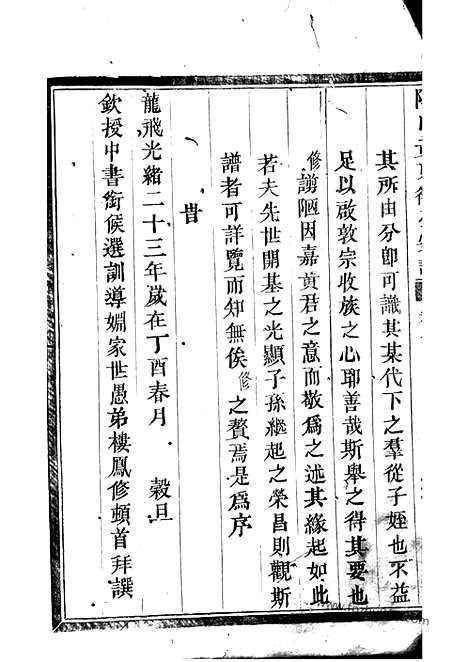 其所由分卽可識其某代下之羣從子姪也不益
足以啟敦宗收族之心耶善哉斯舉之得其要也
修譾陋因嘉黃君之意而敬爲之述其緣起如此
若夫先世開基之光顯子孫繼起之榮昌則觀斯
譜者可詳覽而知無俟修之贅焉是爲序
旹
龍飛光緒二十三年歲在丁酉春月 穀旦
欽授中書銜候選訓導姻家世愚弟樓鳳修頓首拜譔